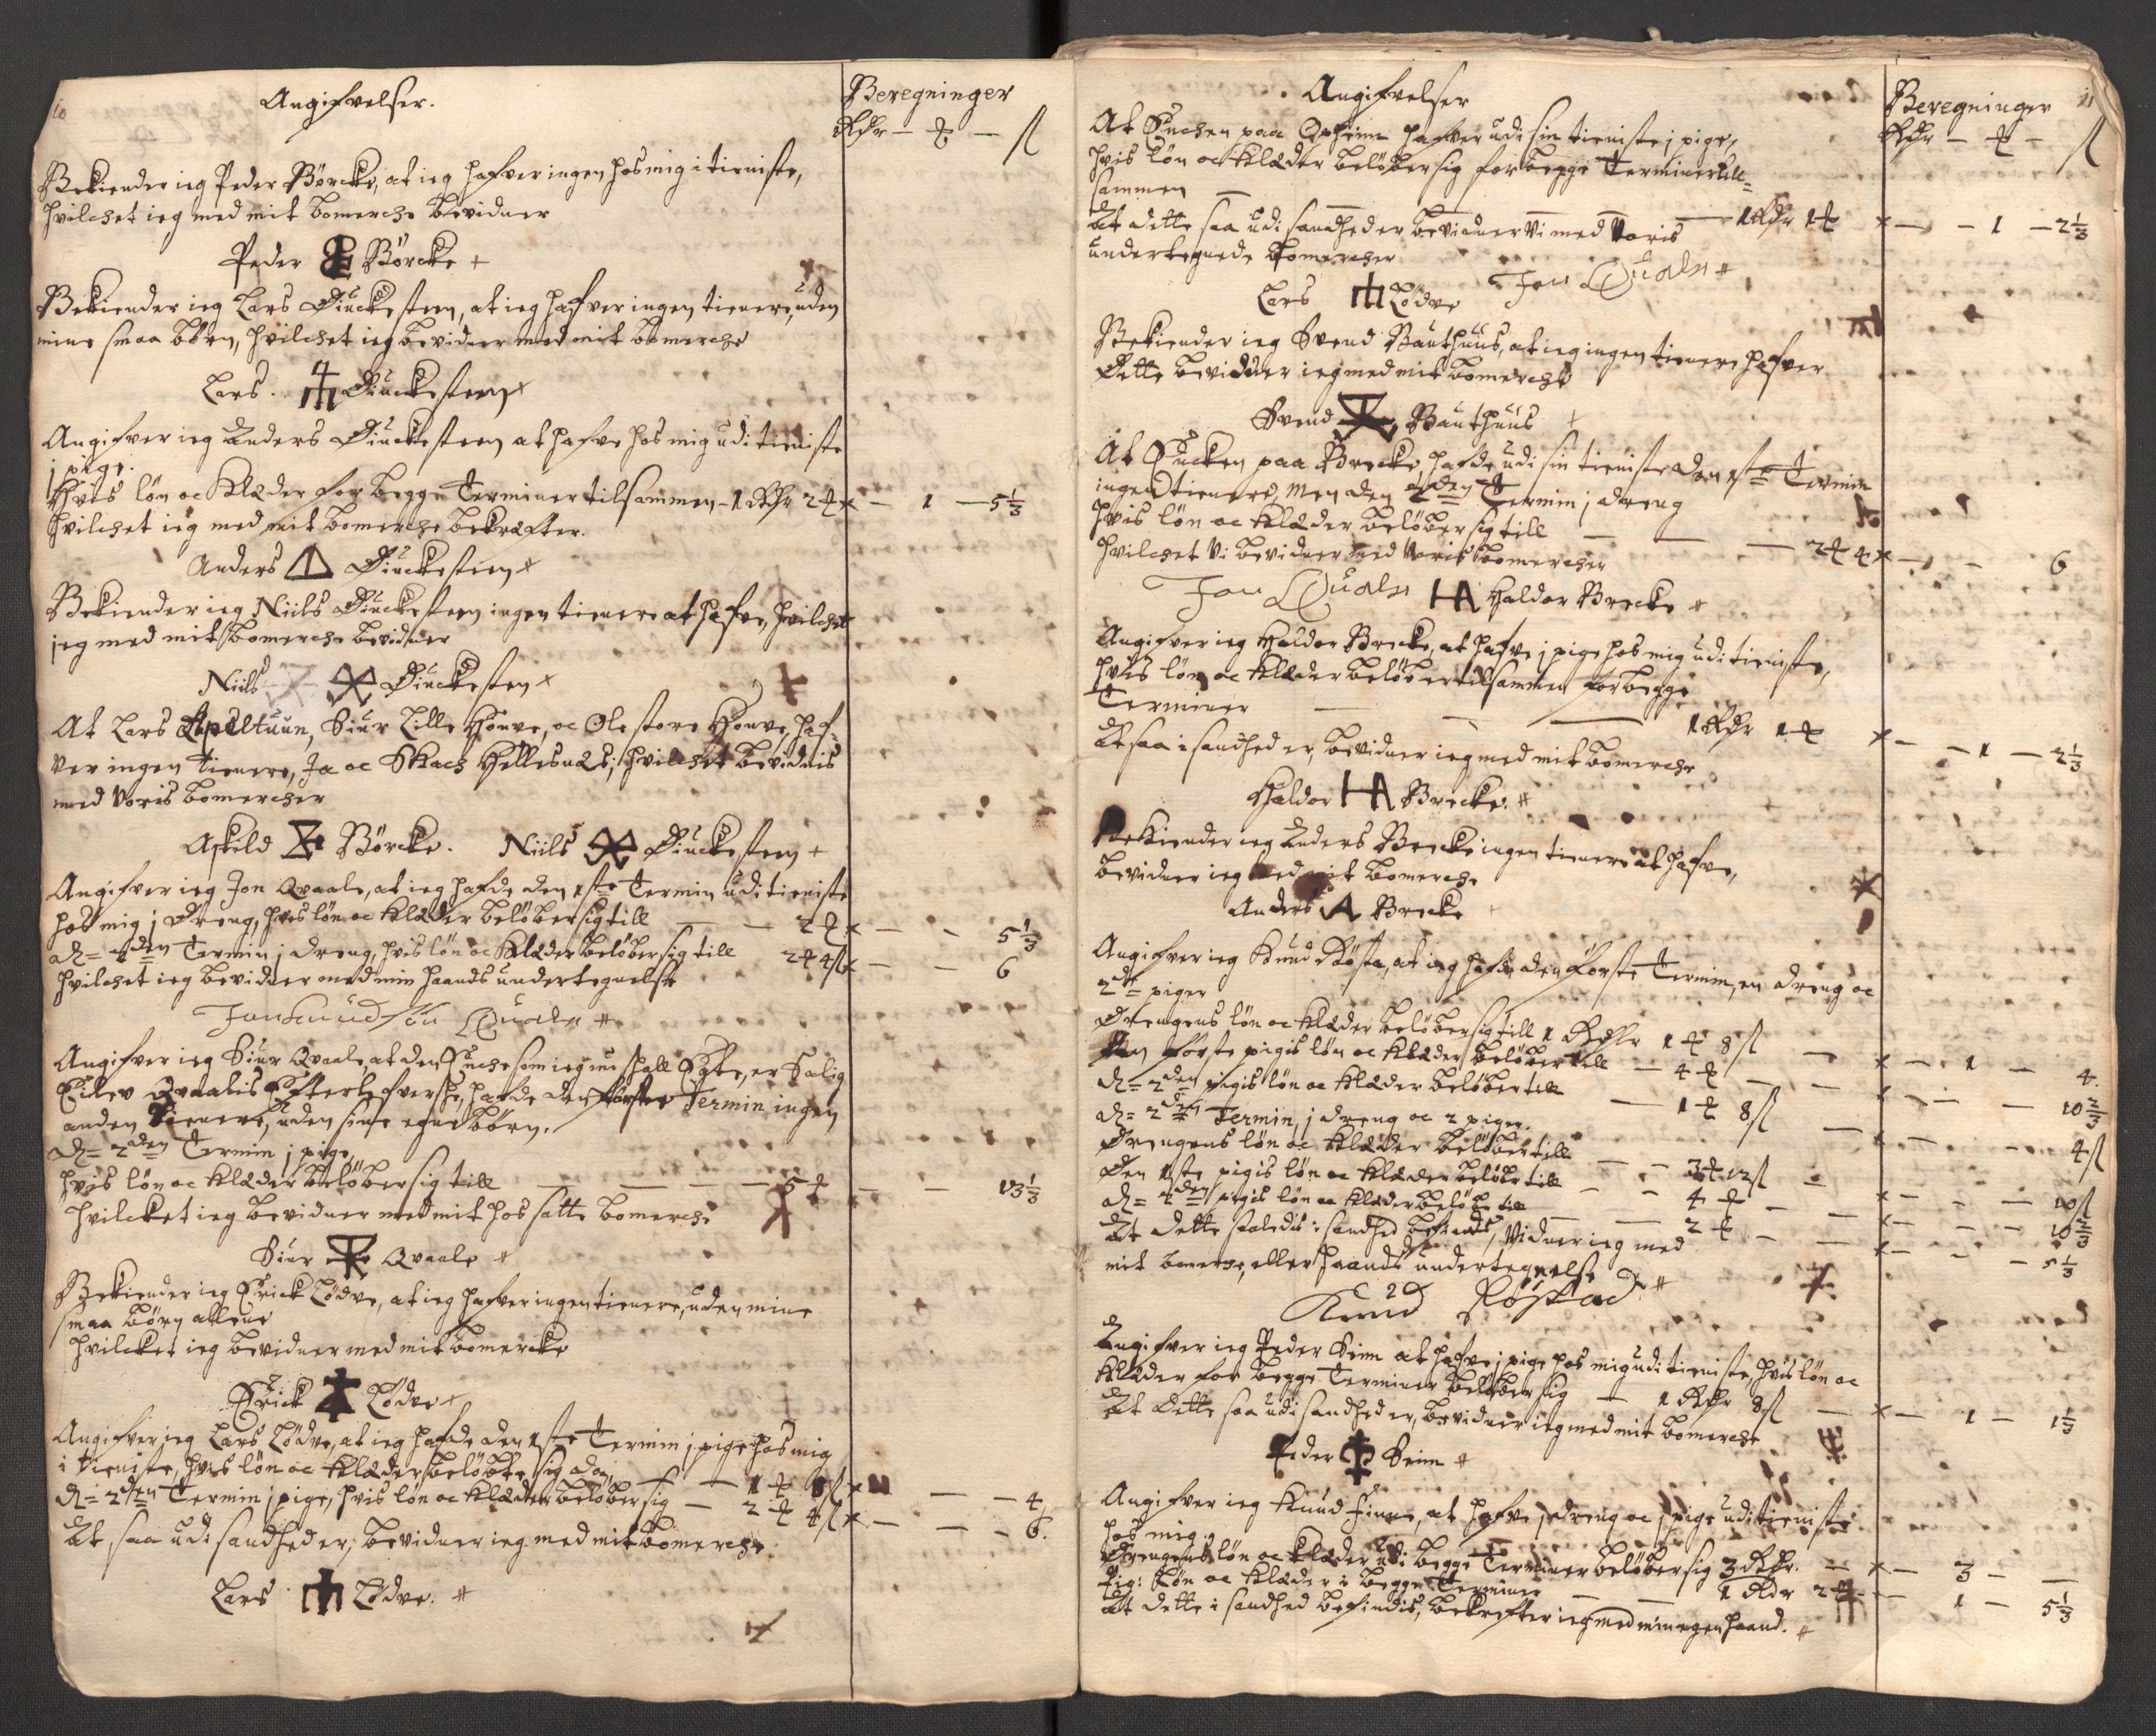 10
Angifvelser.
Beregninger
Rdr – ℔ – ſl
Bekiender ieg Peder Börcke, at ieg hafver ingen hos mig i tieniste,
hvilchet ieg med mit bomerche bevidner
Peder Börcke +
Bekiender ieg Lars Diuckesteen, at ieg hafver ingen tienere, uden
mine smaa börn, hvilchet ieg bevidner med mit bomerche
Lars. Diuckesteen +
Angifver ieg Anders Diuckesteen at hafve hos mig udi tieniste
j pige.
Hvis lön oc Klæder for begge Terminer tilsammen – 1 Rdr 2 ℔ x – 1 – 5⅓
Hvilchet ieg med mit bomerche bekræfter.
Anders Diuckesteen +
Bekiender ieg Niils Diuckesteen ingen tienere at hafve, hvilchet
jeg med mit bomerche bevidner
Niils Diuckesten +
At Lars Apeltuun, Siur Lille Honve, oc Ole store Honve, haf-
ver ingen tienere, Ja oc Skach Hellesnæs; hvilchet bevidnis
med voris bomercher
Askeld Börcke. Niils Diuckesteen +
Angifver ieg Jon Qvaale, at ieg hafde den 1ste Termin udi tieniste
hos mig j Dreng, hvis lön oc Klæder belöber sig till – 2 ℔ x – – 5⅓
D= 2den Termin j dreng, hvis lön oc Klæder belöber sig till 2 ℔ 4 ſl x – – 6
Hvilchet ieg bevidner med min haands undertegnelse
Jon Knudsön Quale #
Angifver ieg Siur Qvaale, at den Enche som ieg nu skall Egte, er Salig
Eilev Qvaalis Efterlefverske, hafde den förster Termin ingen
anden tienere, uden sine egne börn.
D= 2den Termin j pige,
hvis lön oc Klæder belöber sig till – – – – 5 ℔ – – 13⅓
Hvilcket ieg bevidner med mit hos satte bomerche
Siur Qvaale #
Bekiender ieg Erick Lödve, at ieg hafver ingen tienere, uden mine
smaa börn allene
Hvilcket ieg bevidner med mit bomercke
Erick Lödve +
Angifver ieg Lars Lödve, at ieg hafde den 1ste Termin j pige hos mig
i tieniste, hvis lön oc Klæder belöbte sig da – – 1 ℔ 8 ſl x – – – 4
D= 2den Termin j pige, hvis lön oc Klæder belöber sig – 2 ℔ 4 ſl x – – – 6.
At saa udi sandhed er, bevidner ieg med mit bomerche.
Lars Lödve. #
11
Angifvelser
Beregninger
Rdr – ℔ – ſl
At Enchen paa Opheim hafver udi sin tieniste j pige,
hvis lön oc Klæder belöber sig for begge Terminer till-
sammen – – – – – 1 Rdr 1 ℔ x – – 1 – 2⅓
At dette saa udi sandhed er bevidner vi med voris
undertegnede bomercher
Lars Lödve Jon Quale #
Bekiender ieg Svend Bauthuus, at ieg ingen tienere hafver
Dette bevidner ieg med mit bomerche
Svend Bauthuus +
At Encken paa Brecke, hafde udi sin tieniste den 1ste Termin
ingen tienere, men den 2den Termin j dreng
hvis lön oc Klæder belöber sig till – – – 2 ℔ 4 x – – 6
Hvilchet vi bevidner med voris bomercher
Jon Quale Haldor Brecke #
Angifver ieg Haldor Brecke, at hafve j pige hos mig udi tieniste,
hvis lön oc Klæder belöber tilsammen for begge
Terminer – – – 1 Rdr 1 ℔ x – – 1 – 2⅓
At saa i sandhed er, bevidner ieg med mit bomerche
Haldor Brecke. #
Bekiender ieg Anders Brecke ingen tienere at hafve,
bevidner ieg med mit bomerche
Anders Brecke
Angifver ieg Knud Rösta, at ieg hafde den förste Termin, en dreng oc
2de piger
Drengens lön oc Klæder belöber sig till 1 Rdlr 1 ℔ 8 ſl – x – 1 – 4.
Den förste pigis lön oc Klæder belöber till – 4 ℔ – – x – – – 10⅔
D= 2den pigis lön oc Klæder belöber till – 1 ℔ 8 ſl – x – – – 4 ſl
D= 2den Termin, j dreng oc 2 piger.
Drengens lön oc Klæder belöber till – – 3 ℔ 12 ſl – x – – – 10 ſl
Den 1ste pigis lön oc Klæder belöber till – – 4 ℔ – – x – – – 10⅔
D= 2den pigis lön oc Klæder belöber till – – 2 ℔ – – x – – – 5⅓
At dette saaledis i sandhed befindis, vidner ieg med
mit bomerche, eller haands undertegnelse
Knud Röstad #
Angifver ieg Peder Seim at hafve j pige hos mig udi tieniste, hvis lön oc
Klæder for begge Terminer belöber sig – 1 Rdr 8 ſl – x – 1 – 1⅓
At dette saa udi sandhed er, bevidner ieg med mit bomerche
Peder Seim #
Angifver ieg Knud Finne, at hafve j dreng oc j pige udi tieniste
hos mig.
Drengens lön oc Klæder udi begge Terminer belöber sig 3 Rdr. – x – 3 – –
Pig: Lön oc Klæder i begge Terminer – – 1 Rdr 2 ℔ – 1 – 5⅓
At dette i sandhed befindis, bekrefter ieg med min egen haand. #